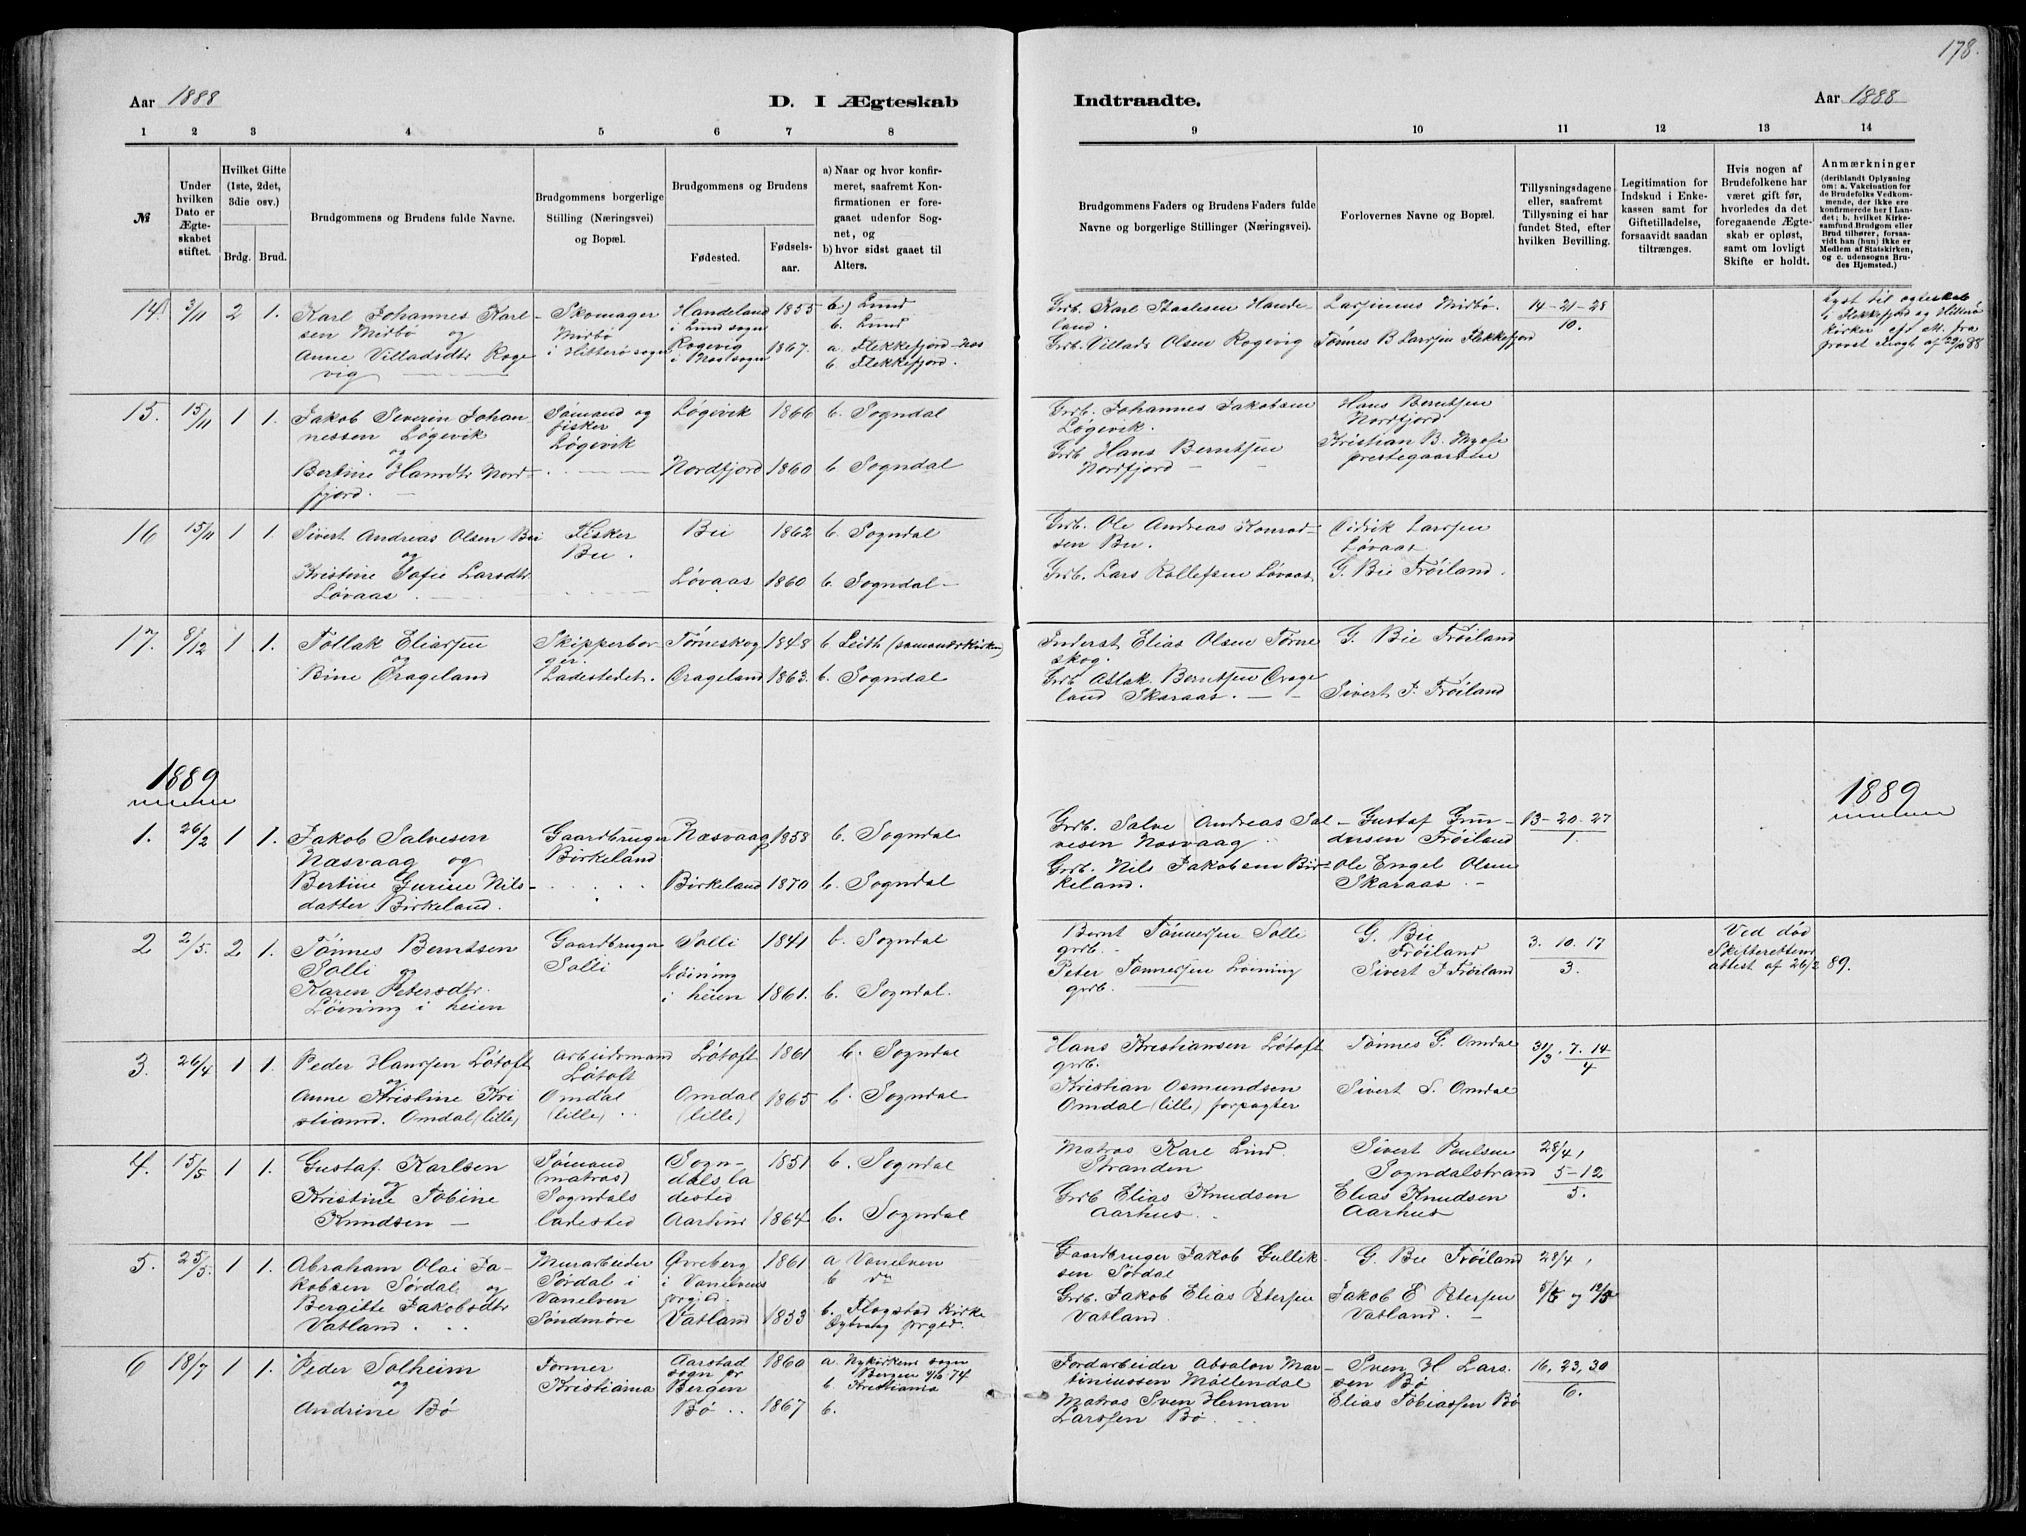 178.
Aar 1888
D. I Ægteskab
Indtraadte.
Aar 1888
1 2 3 4 5 6 7 8
9 10 11 12 13 14
№
Under
hvilken
Dato er
Ægte-
skabet
stiftet.
Hvilket Gifte
(1ste, 2det,
3die osv.)
Brdg.
Brud.
Brudgommens og Brudens fulde Navne.
Brudgommens borgerlige
Stilling (Næringsvei)
og Bopæl.
Brudgommens og Brudens
Fødested.
Fødsels-
aar.
a) Naar og hvor konfir-
meret, saafremt Kon-
firmationen er fore-
gaaet udenfor Sog-
net, og
b) hvor sidst gaaet til
Alters.
Brudgommens Faders og Brudens Faders fulde
Navne og borgerlige Stillinger (Næringsvei).
Forlovernes Navne og Bopæl.
Tillysningsdagene
eller, saafremt
Tillysning ei har
fundet Sted, efter
hvilken Bevilling.
Legitimation for
Indskud i Enke-
kassen samt for
Giftetilladelse,
forsaavidt saadan
tiltrænges.
Hvis nogen af
Brudefolkene har
været gift før,
hvorledes da det
foregaaende Ægte-
skab er opløst,
samt om lovligt
Skifte er holdt.
Anmærkninger
(deriblandt Oplysning
om: a. Vakcination for
de Brudefolks Vedkom-
mende, der ikke ere
konfirmerede her i Lan-
det; b. hvilket Kirke-
samfund Brudgom eller
Brud tilhører, forsaa-
vidt han (hun) ikke er
Medlem af Statskirken,
og c. udensogns Bru-
des Hjemsted.)
14 3/11 2 1.
Karl Johannes Karl-
sen Mirbø og
Anne Villadsdtr Roge
vig
Skomager
Mirbø
i Hitterø sogn
Handeland
i Lund sogn
Rogevig
i Nes sogn
1855
1867.
b.) Lund
b. Lund
a. Flekkefjord-Nes
b. Flekkefjord.
Grb. Karl Staalesen Hande-
land.
Grb. Villads Olsen Rogevig
Larsinius Mirbø.
Tønnes B Larssen Flekkefjord
14-21-28
10.
Lyst til egteskab
i Flekkefjord og Hitterø
kirker ef. Att. fra
provst Krogh af 29/10 88
15. 15/11 1 1.
Jakob Severin Johan
nessen Løgevik
og
Bertine Hansdtr Nord-
fjord.
Sømand og
fisker
Løgevik
Løgevik
Nordfjord
1866
1860
b. Sogndal
b Sogndal
Grb. Johannes Jakobsen
Løgevik.
Grb Hans Berntsen
Nordfjord
Hans Berntsen
Nordfjord
Kristian B. Mysse
prestegaarden
16 15/11 1 1.
Sivert Andreas Olsen Bu
og
Kristine Sofie Larsdtr
Løvaas
Fisker
Bu.
Bu
Løvaas
1862
1860
b Sogndal
b. Sogndal
Grb. Ole Andreas Konrad-
sen Bu.
Grb. Lars Rollefsen Løvaas
Didrik Larssen
Løvaas
G. Bie Frøiland.
17. 8/12 1 1.
Tollak Eliassen
og
Bine Orageland
Skipperbor-
ger.
Ladestedet.
Tørneskog
Orageland
1848
1863.
b Leith (sømandskirken)
b. Sogndal
Inderst Elias Olsen Tørne
skog.
Grb Aslak Berntsen Orage
land Skaraas.
G. Bie Frøiland
Sivert J. Frøiland
1889
1889
1. 26/2 1 1.
Jakob Salvesen
Næsvaag og
Bertine Gurine Nils-
datter Birkeland.
Gaardbruger
Birkeland
Næsvaag
Birkeland
1858
1870
b. Sogndal
b. Sogndal
Grb. Salve Andreas Sal-
vesen Nesvaag
Grb. Nils Jakobsen Bir-
keland.
Gustaf Gun-
dersen Frøiland
Ole Engel Olsen
Skaraas
13-20-27
1.
2 2/5. 2 1.
Tønnes Berntsen
Solli og
Karen Petersdtr.
Løining i heien
Gaardbruger
Solli
Solli
Løining
i heien
1841
1861.
b. Sogndal
b. Sogndal.
Bernt Tønnessen Solle
grb.
Peter Tønnessen Løining
grb.
G. Bie
Frøiland
Sivert J Frøiland
3. 10. 17
3.
Ved død
Skifterettens
attest af 26/2 89.
3. 26/4 1 1.
Peder Hanssen Løtoft
og
Anne Kristine Kri
stiansd. Omdal (lille)
Arbeidsmand
Løtoft
Omdal
(lille)
Løtoft
Omdal
(lille)
1861
1865
b. Sogndal
b. Sogndal
Hans Kristiansen Løtoft
grb.
Kristian Osmundsen
Omdal (lille) forpagter
Tønnes G. Omdal
Sivert S. Omdal
31/3. 7. 14
4
4. 15/5 1 1.
Gustaf Karlsen
og
Kristine Tobine
Knudsen
Sømand
(matros)
Sogndals
ladested
Sogn-
dals la
dested
Aarhus
1851
1864
b. Sogndal
b. Sogndal
Matros Karl Lind
Stranden
Grb Elias Knudsen
Aarhus
Sivert Poulsen
Sogndalstrand
Elias Knudsen
Aarhus
28/4,
5-12
5.
5. 25/5. 1 1.
Abraham Olai Ja-
kobsen Sørdal og
Bergitte Jakobsdtr
Vatland
Murarbeider
Sørdal i
Vanelven
Søndmøre
Øvreberg
i Vanelvens
prgjld.
Vatland
1861
1833
a Vanelven
b do
b. Flogstad Kirke
prgjld.
Gaardbruger Jakob Gullik-
sen Sørdal
Grb. Jakob Elias Petersen
Vatland
G. Bie Frøiland
Jakob E Petersen
Vatland.
28/4,
5/5 og 12/5
6 18/7 1 1.
Peder Solheim
og
Andrine Bø
Former
Kristiania
Aarstad
sogn pr
Bergen
Bø
1860
1867
a. Nykirkens sogn
Bergen 4/10 74
b. Kristiania
b.
Jordarbeider Absalon Mar-
tiniussen Møllendal
Matros Sven Herman
Larssen Bø
Sven H Lars-
sen Bø
Elias Tobiassen Bø
16, 23, 30
6.